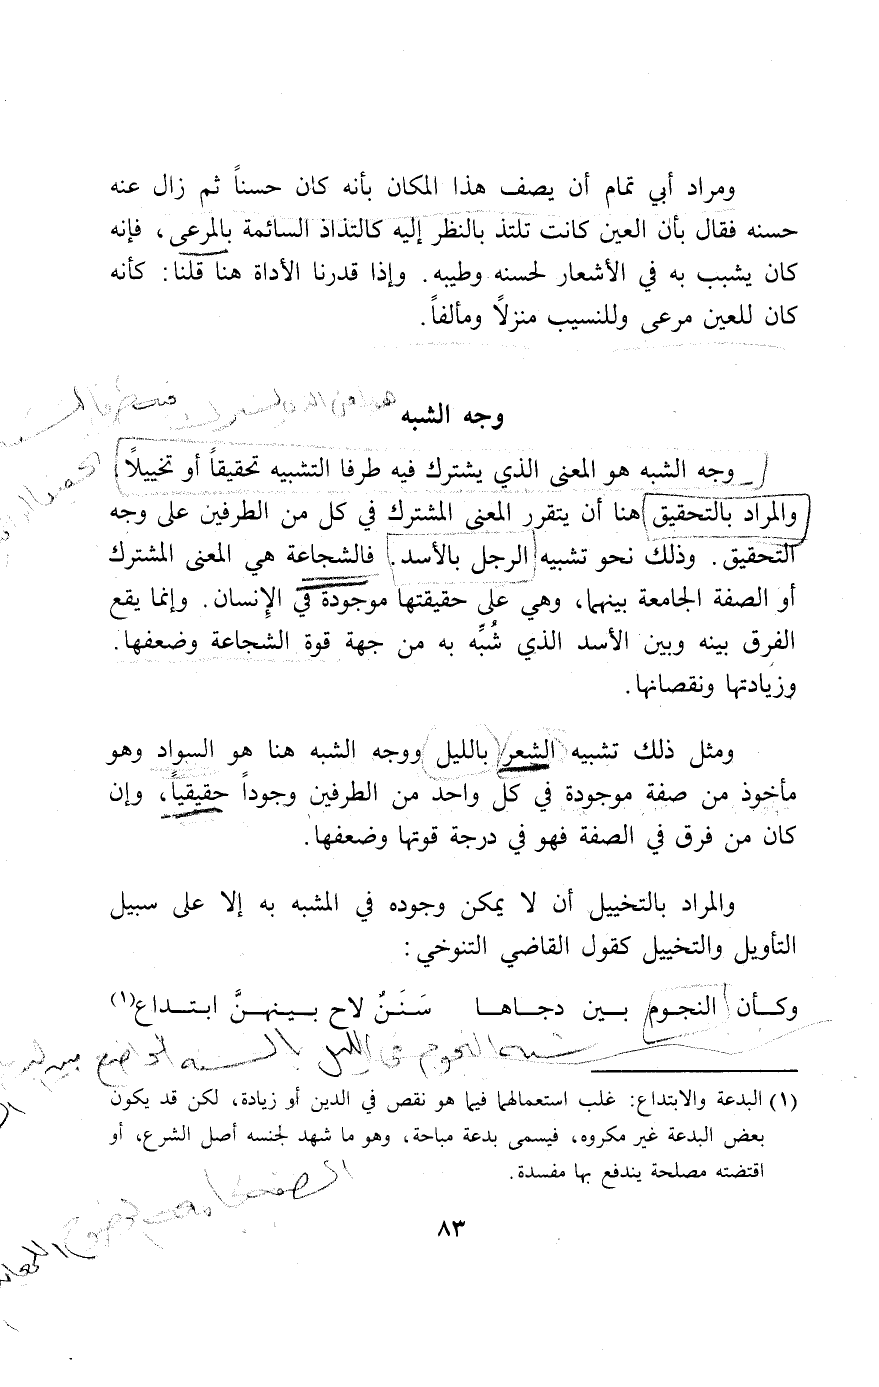 ومراد أبي تمام أن يصف هذا المكان بأنه كان حسناً ثم زال عنه
حسنه فقال بأن العين كانت تلتذ بالنظر إليه كالتذاذ السائمة بالمرعى، فإنه
كان يشبب به في الأشعار لحسنه وطيبه. وإذا قدرنا الأداة هنا قلنا: كأنه
كان للعين مرعى وللنسيب منزلاً ومألفاً.
وجه الشبه
وجه الشبه هو المعنى الذي يشترك فيه طرفا التشبيه تحقيقاً أو تخييلاً
والمراد بالتحقيق هنا أن يتقرر المعنى المشترك في كل من الطرفين على وجه
التحقيق. وذلك نحو تشبيه الرجل بالأسد. فالشجاعة هي المعنى المشترك
أو الصفة الجامعة بينهما، وهي على حقيقتها موجودة في الإنسان. وإنما يقع
الفرق بينه وبين الأسد الذي شُبِّه به من جهة قوة الشجاعة وضعفها.
وزيادتها ونقصانها.
ومثل ذلك تشبيه الشعر بالليل ووجه الشبه هنا هو السواد وهو
مأخوذ من صفة موجودة في كل واحد من الطرفين وجوداً حقيقياً، وإن
كان من فرق في الصفة فهو في درجة قوتها وضعفها.
والمراد بالتخييل أن لا يمكن وجوده في المشبه به إلا على سبيل
التأويل والتخييل كقول القاضي التنوخي:
وكـأن النجـوم بـين دجـاهـا سَـنَـنٌ لاح بـينهـنَّ ابـتـداع(١)
شبه النجوم في الليل بالسنه الواضح
(١) البدعة والابتداع: غلب استعمالهما فيما هو نقص في الدين أو زيادة، لكن قد يكون
بعض البدعة غير مكروه، فيسمى بدعة مباحة، وهو ما شهد لجنسه أصل الشرع، أو
اقتضته مصلحة يندفع بها مفسدة.
٨٣